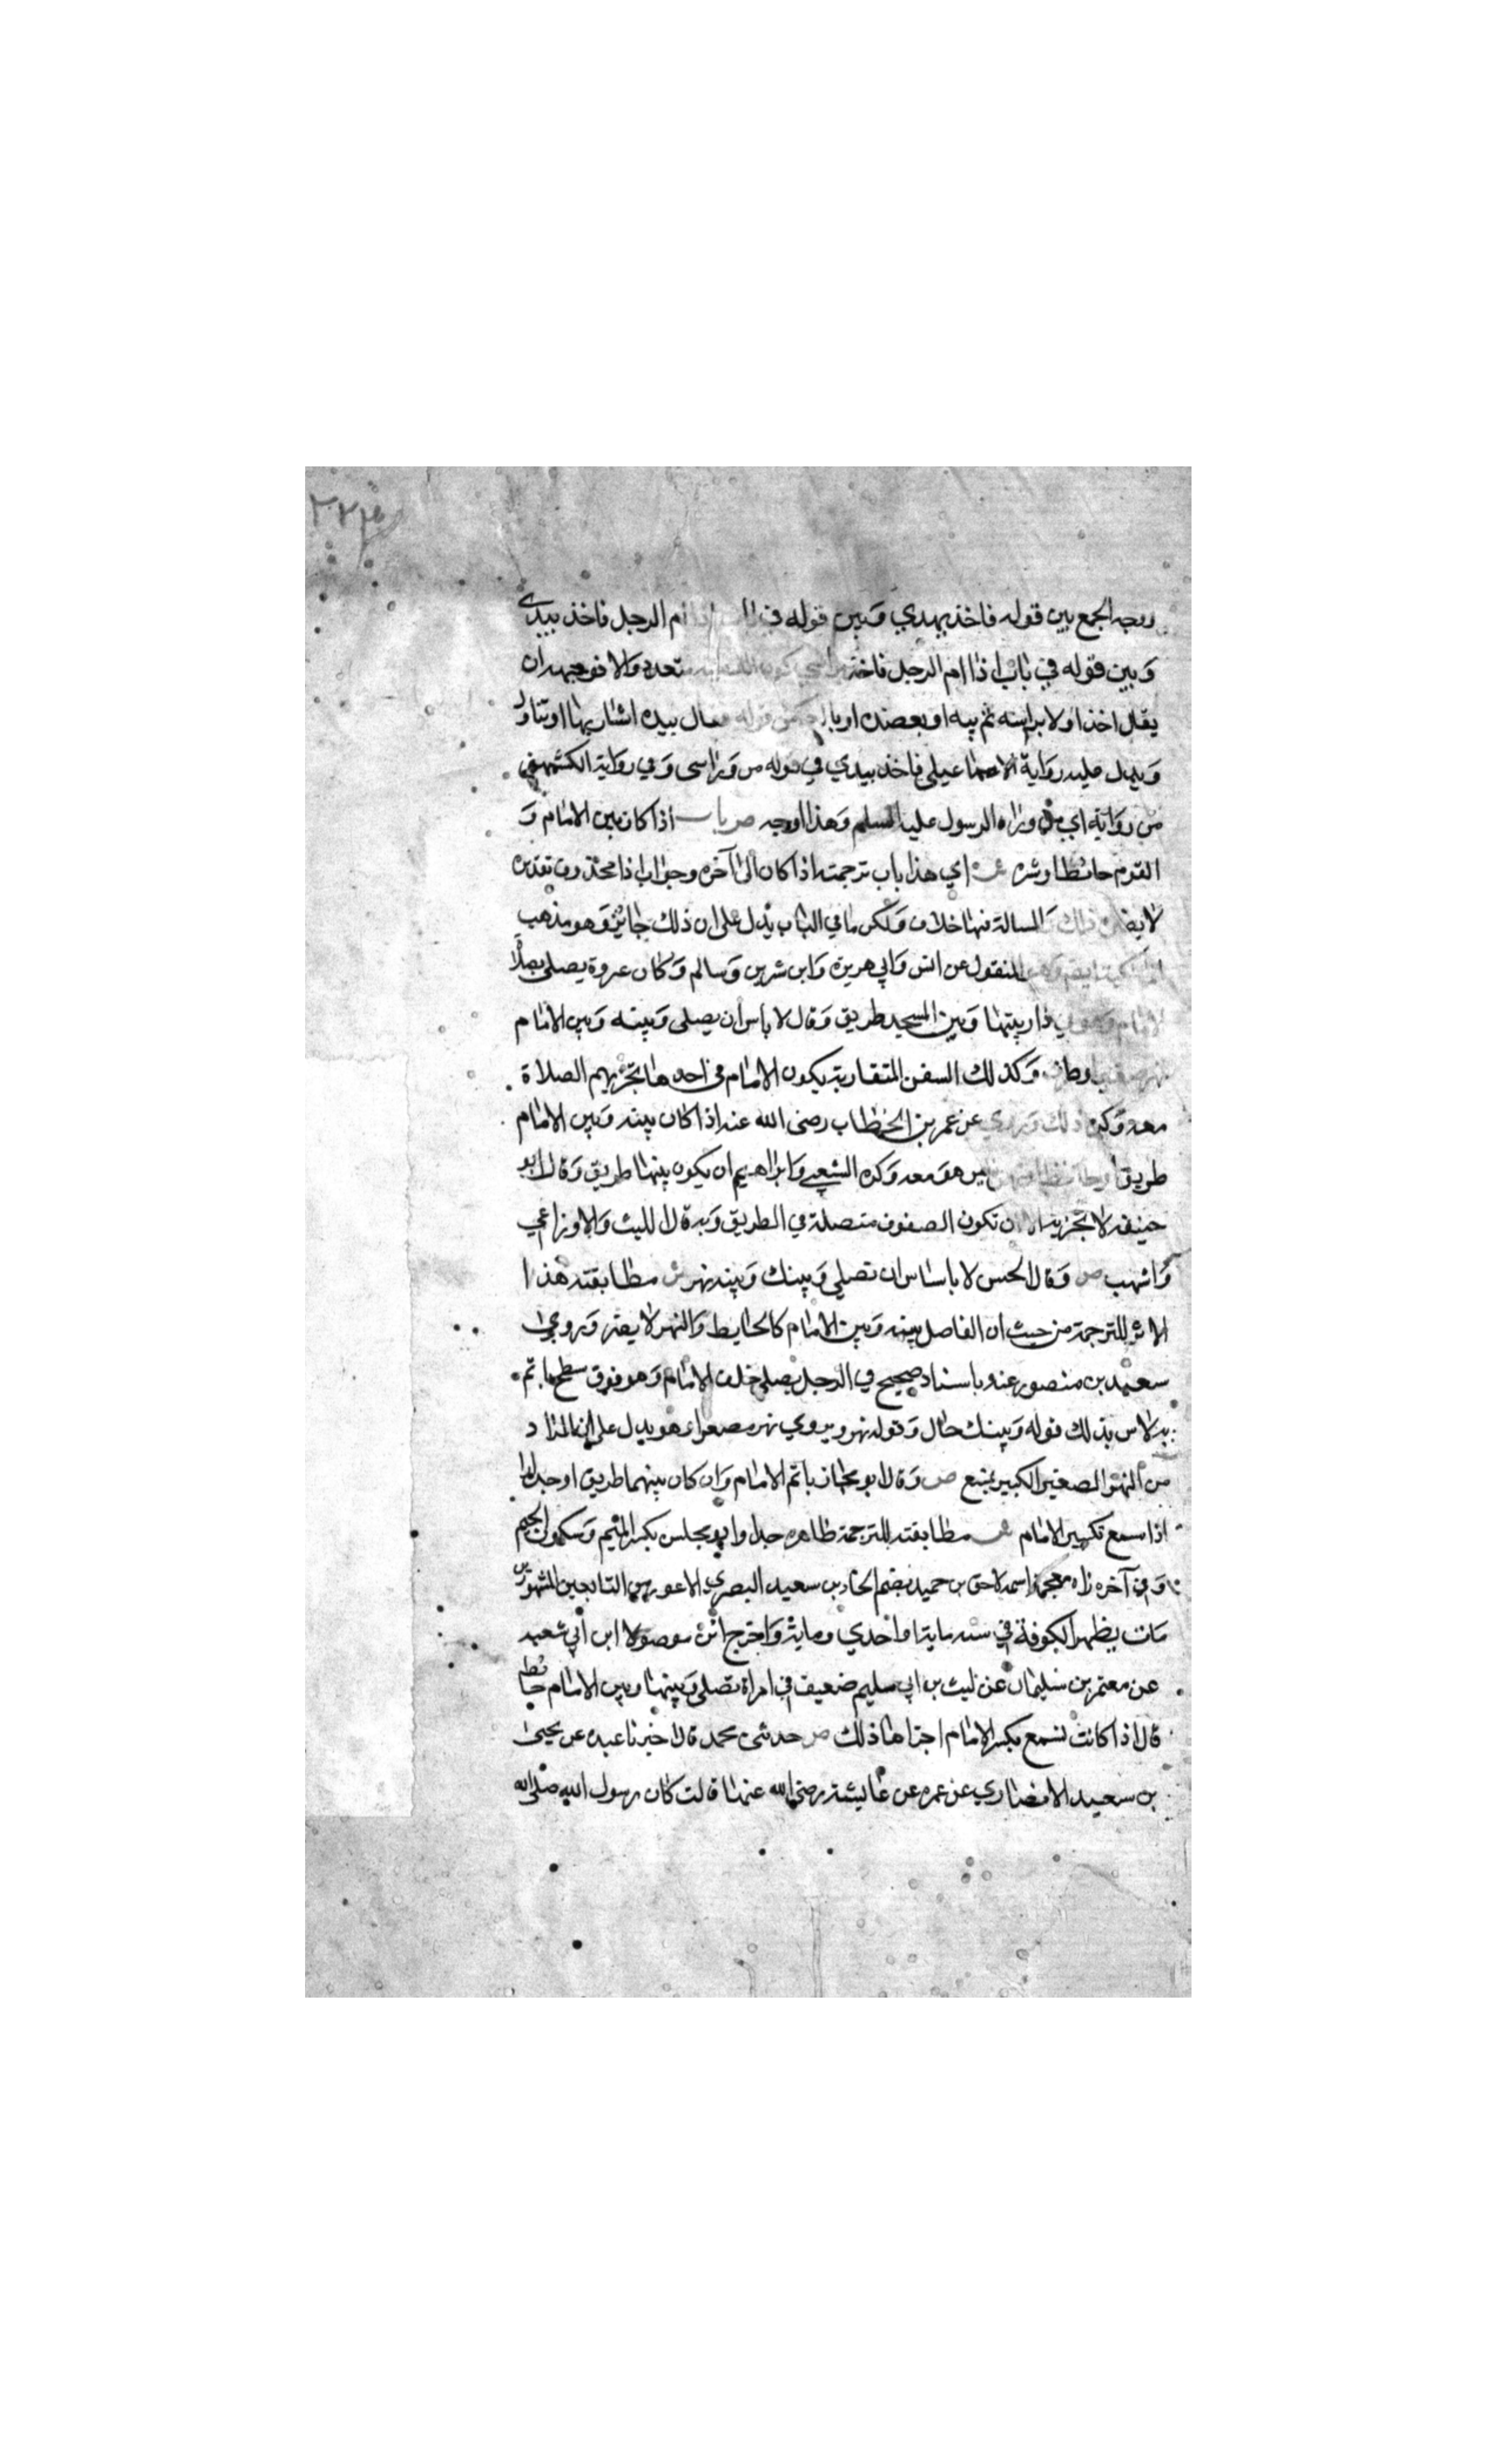 ٢٢٤
ووجه الجمع بين قوله فاخذ بيدي وبين قوله في باب اذا ام الرجل فاخذ بيدي
وبين قوله في باب اذا ام الرجل فاخذ كون متعدد والا فوجهه ان
يقال اخذ اولا براسه ثم بيده او بعضده او قوله فقال بيده اشار بها او تناول
ويدل عليه رواية الاسماعيلي فاخذ بيدي في قوله من وراسى وفي رواية الكشميهني
من روايه اي من وراه الرسول عليه السلم وهذا اوجه ص باب اذا كان بين الامام و
القوم حائطا وستره ش اي هذا باب ترجمته اذا كان الى آخره وجواب اذا محذوف تقديره
لا يضر ذلك والمسالة فيها خلاف ولكن ما في الباب يدل على ان ذلك جائز وهو مذهب
المالكية ايضا وهو المنقول عن انس وابي هريرة وابن شرين وسالم وكان عروة يصلى بصلاة
الامام وهو في دار بينها وبين المسجد طريق وقال لا باس ان يصلى وبينه وبين الامام
نهر صغير او طريق وكذلك السفن المتقاربة يكون الامام في احدها تجزيهم الصلاة
معه وكره ذلك وروي عن عمر بن الخطاب رضى الله عنه اذا كان بينه وبين الامام
طريق او حائط او نهر فليس هو معه وكره الشعبي وابراهيم ان يكون بينها طريق وقال ابو
حنيفه لا تجزيه الا ان تكون الصفوف متصلة في الطريق وبه قال الليث والاوزاعي
واشهب ص وقال الحسن لا باسا س ان تصلي وبينك وبينه نهر ش مطابقته هذا
الاثر للترجمة من حيث ان الفاصل بينه وبين الامام كالحايط والنهر لا يضر وروي
سعيد بن منصور عنه باسناد صحيح في الرجل يصلي خلف الامام وهو فوق سطح ياتم
به لا س بذلك قوله وبينك حال وقوله نهر ويروي نهر مصغرا وهو يدل على ان المراد
من النهر الصغير الكبير يمنع ص وقال ابو مجلز ياتم الامام وان كان بينهما طريق او جدار
اذا سمع تكبير الامام ش مطابقته للترجمة ظاهره جدا وابو مجلس بكسر الميم وسكون الجيم
وفي آخره زاه معجمة واسمه لاحق بن حميد بضم الحاد بن سعيد البصري الاعور من التابعين المشهورين
مات بظهر الكوفة في سنه ماية او احدي وماية واخرج اثره موصولا ابن ابي شعبه
عن معتمر بن سليمان عن ليث بن ابي سليم ضعيف في امراة تصلي وبينها وبين الامام حائط
قال اذا كانت تسمع تكبير الامام اجزاها ذلك ص حدثنى محمد قال اخبرنا عبده عن يحيى
بن سعيد الانصاري عن عمره عن عايشة رضى الله عنها قالت كان رسول الله صلى الله